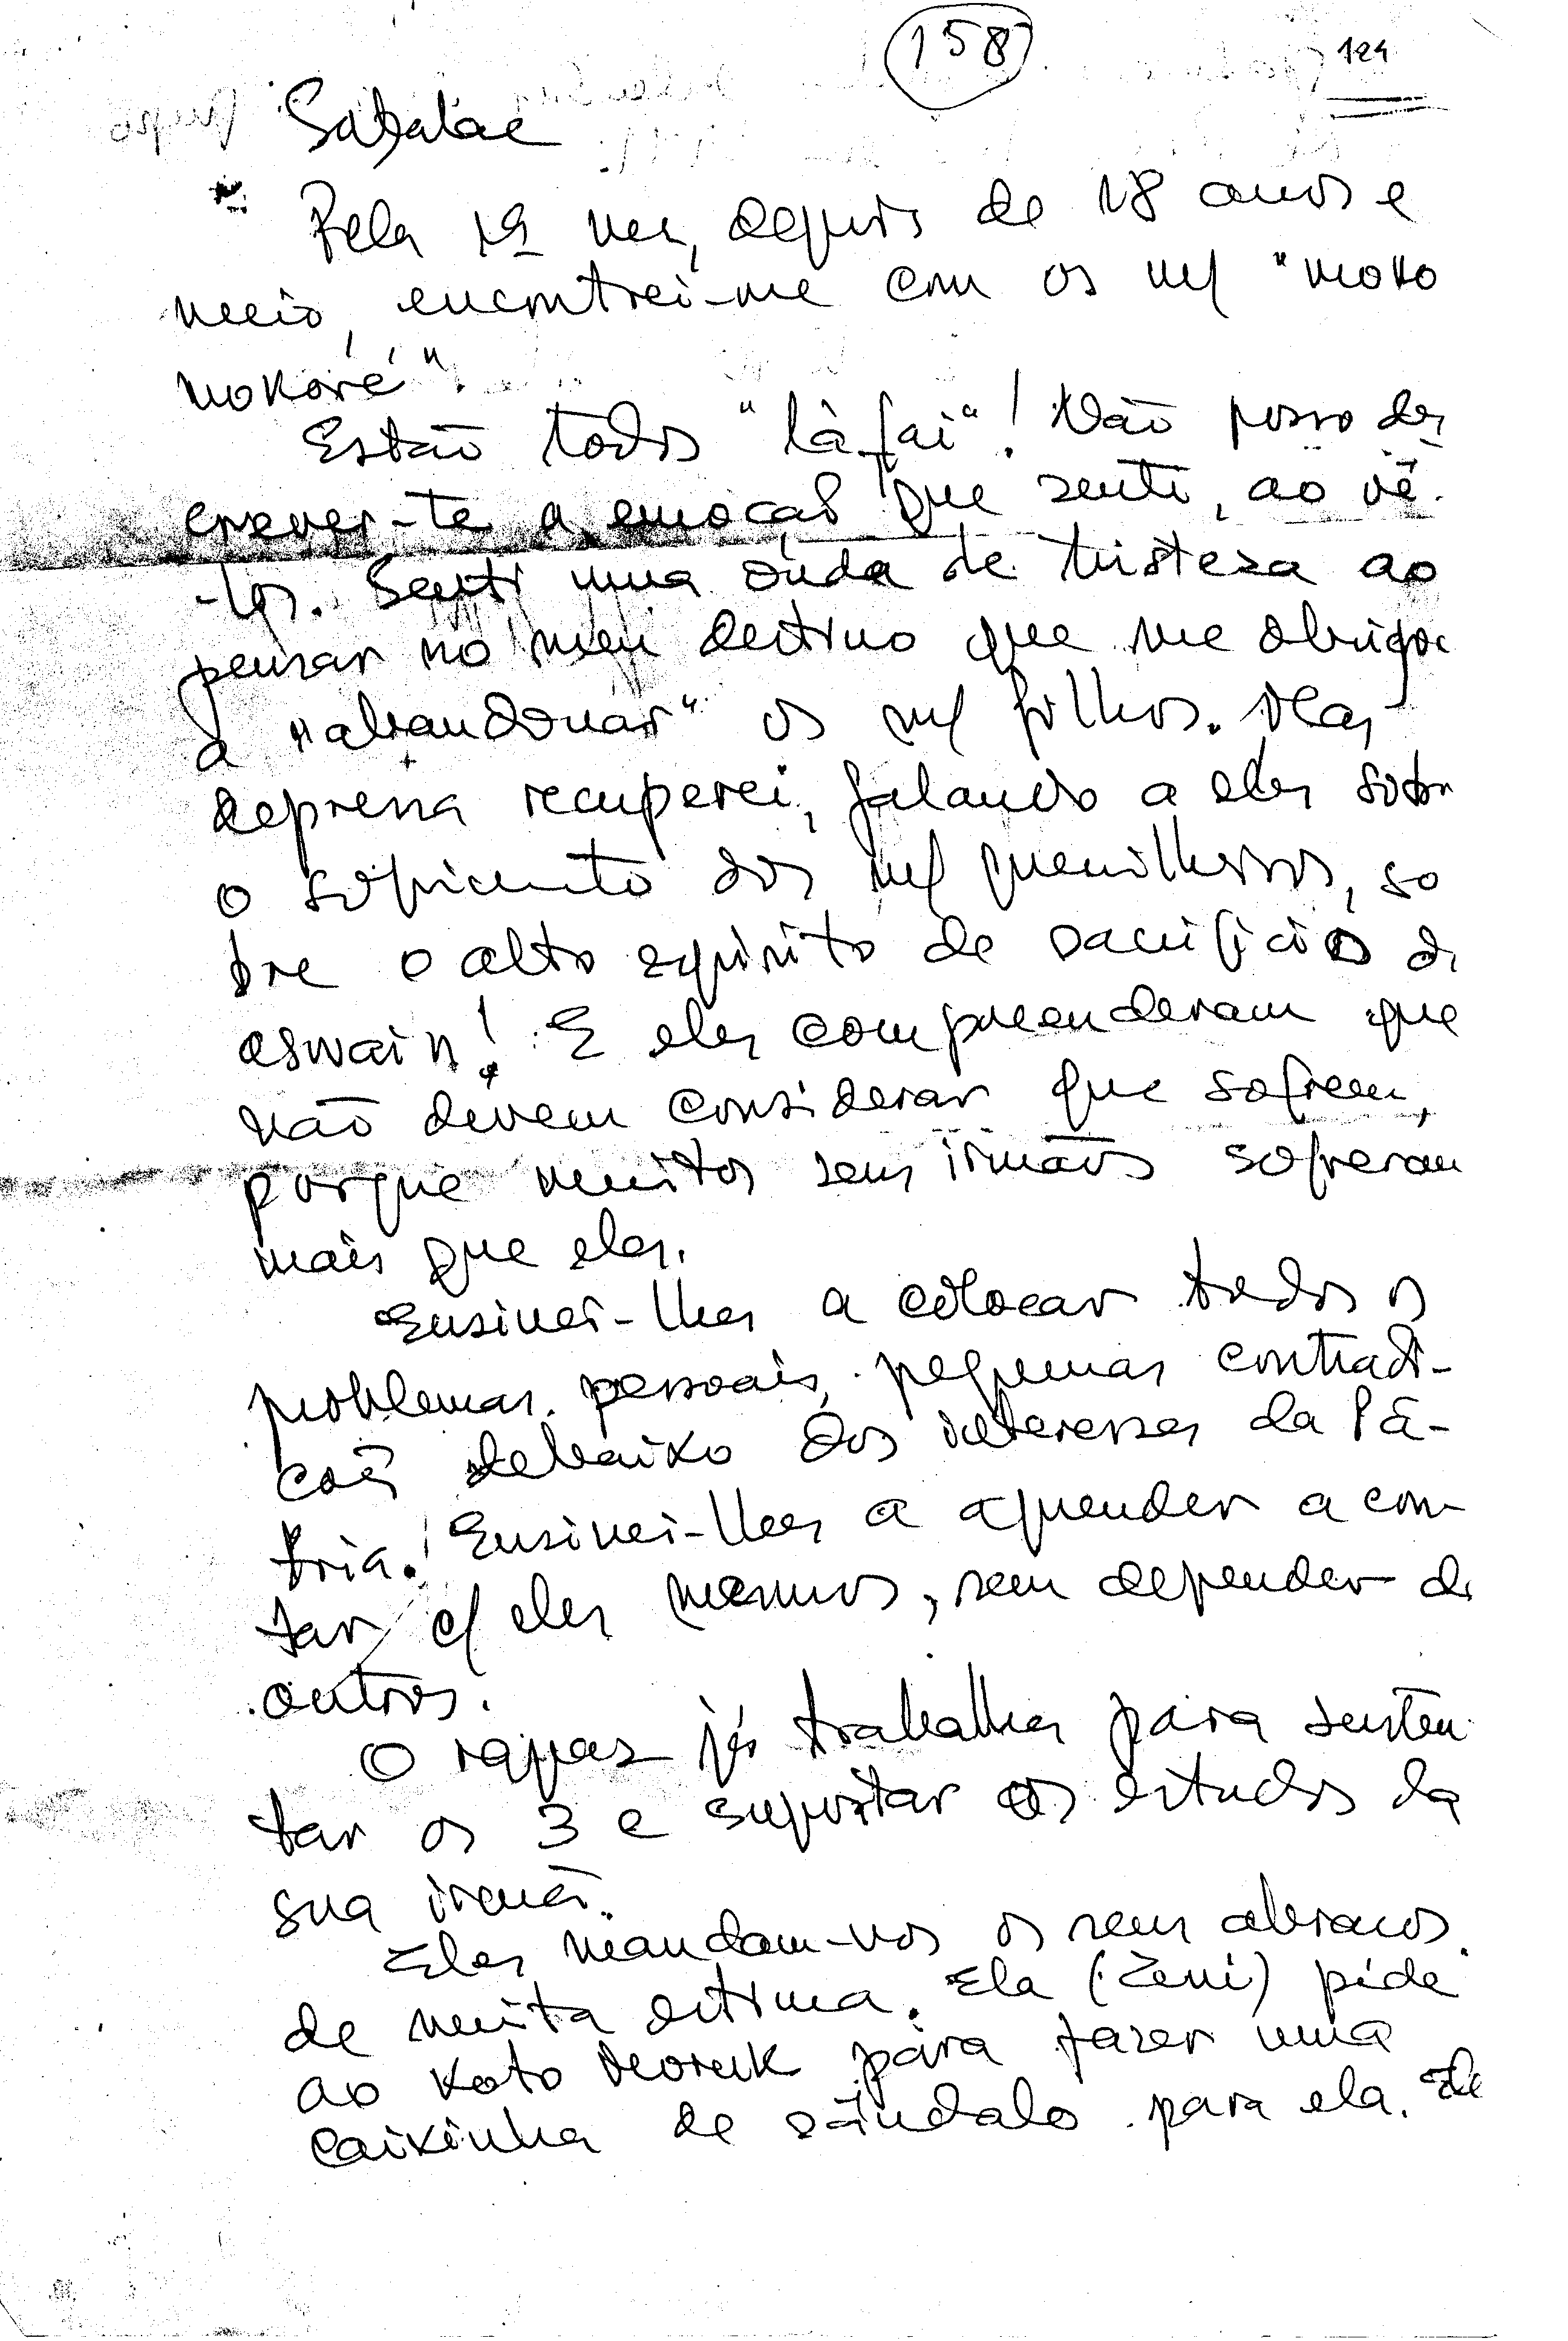 158
124
Sabalae
Pela 1ª vez, depois de 18 anos e
meio, encontrei-me com os m/ "moko
nokoré".
Estão todos "làfai"! Não posso des
crever-te a emoção que senti, ao vê-
-los. Senti uma onda de tristeza ao
pensar no meu destino que me obrigou
a "abandonar" os m/ filhos. Mas
depressa recuperei, falando a eles sobre
o sofrimento dos m/ guerrilheiros, so
bre o alto espírito de sacrifício de
aswain! E eles compreenderam que
não devem considerar que sofrem,
porque muitos seus irmãos sofreram
mais que eles.
Ensinei-lhes a colocar todos os
problemas pessoais, pequenas contradi-
ções debaixo dos interesses da Pá-
tria! Ensinei-lhes a aprender a con
tar c/ eles mesmos, sem depender de
outros.
O rapaz já trabalha para susten
tar os 3 e suportar os estudos da
sua irmã.
Eles mandam-vos os seus abraços
de muita estima. Ela (Zeni) pede
ao Koto Moruk para fazer uma
caixinha de sândalo para ela. Ele